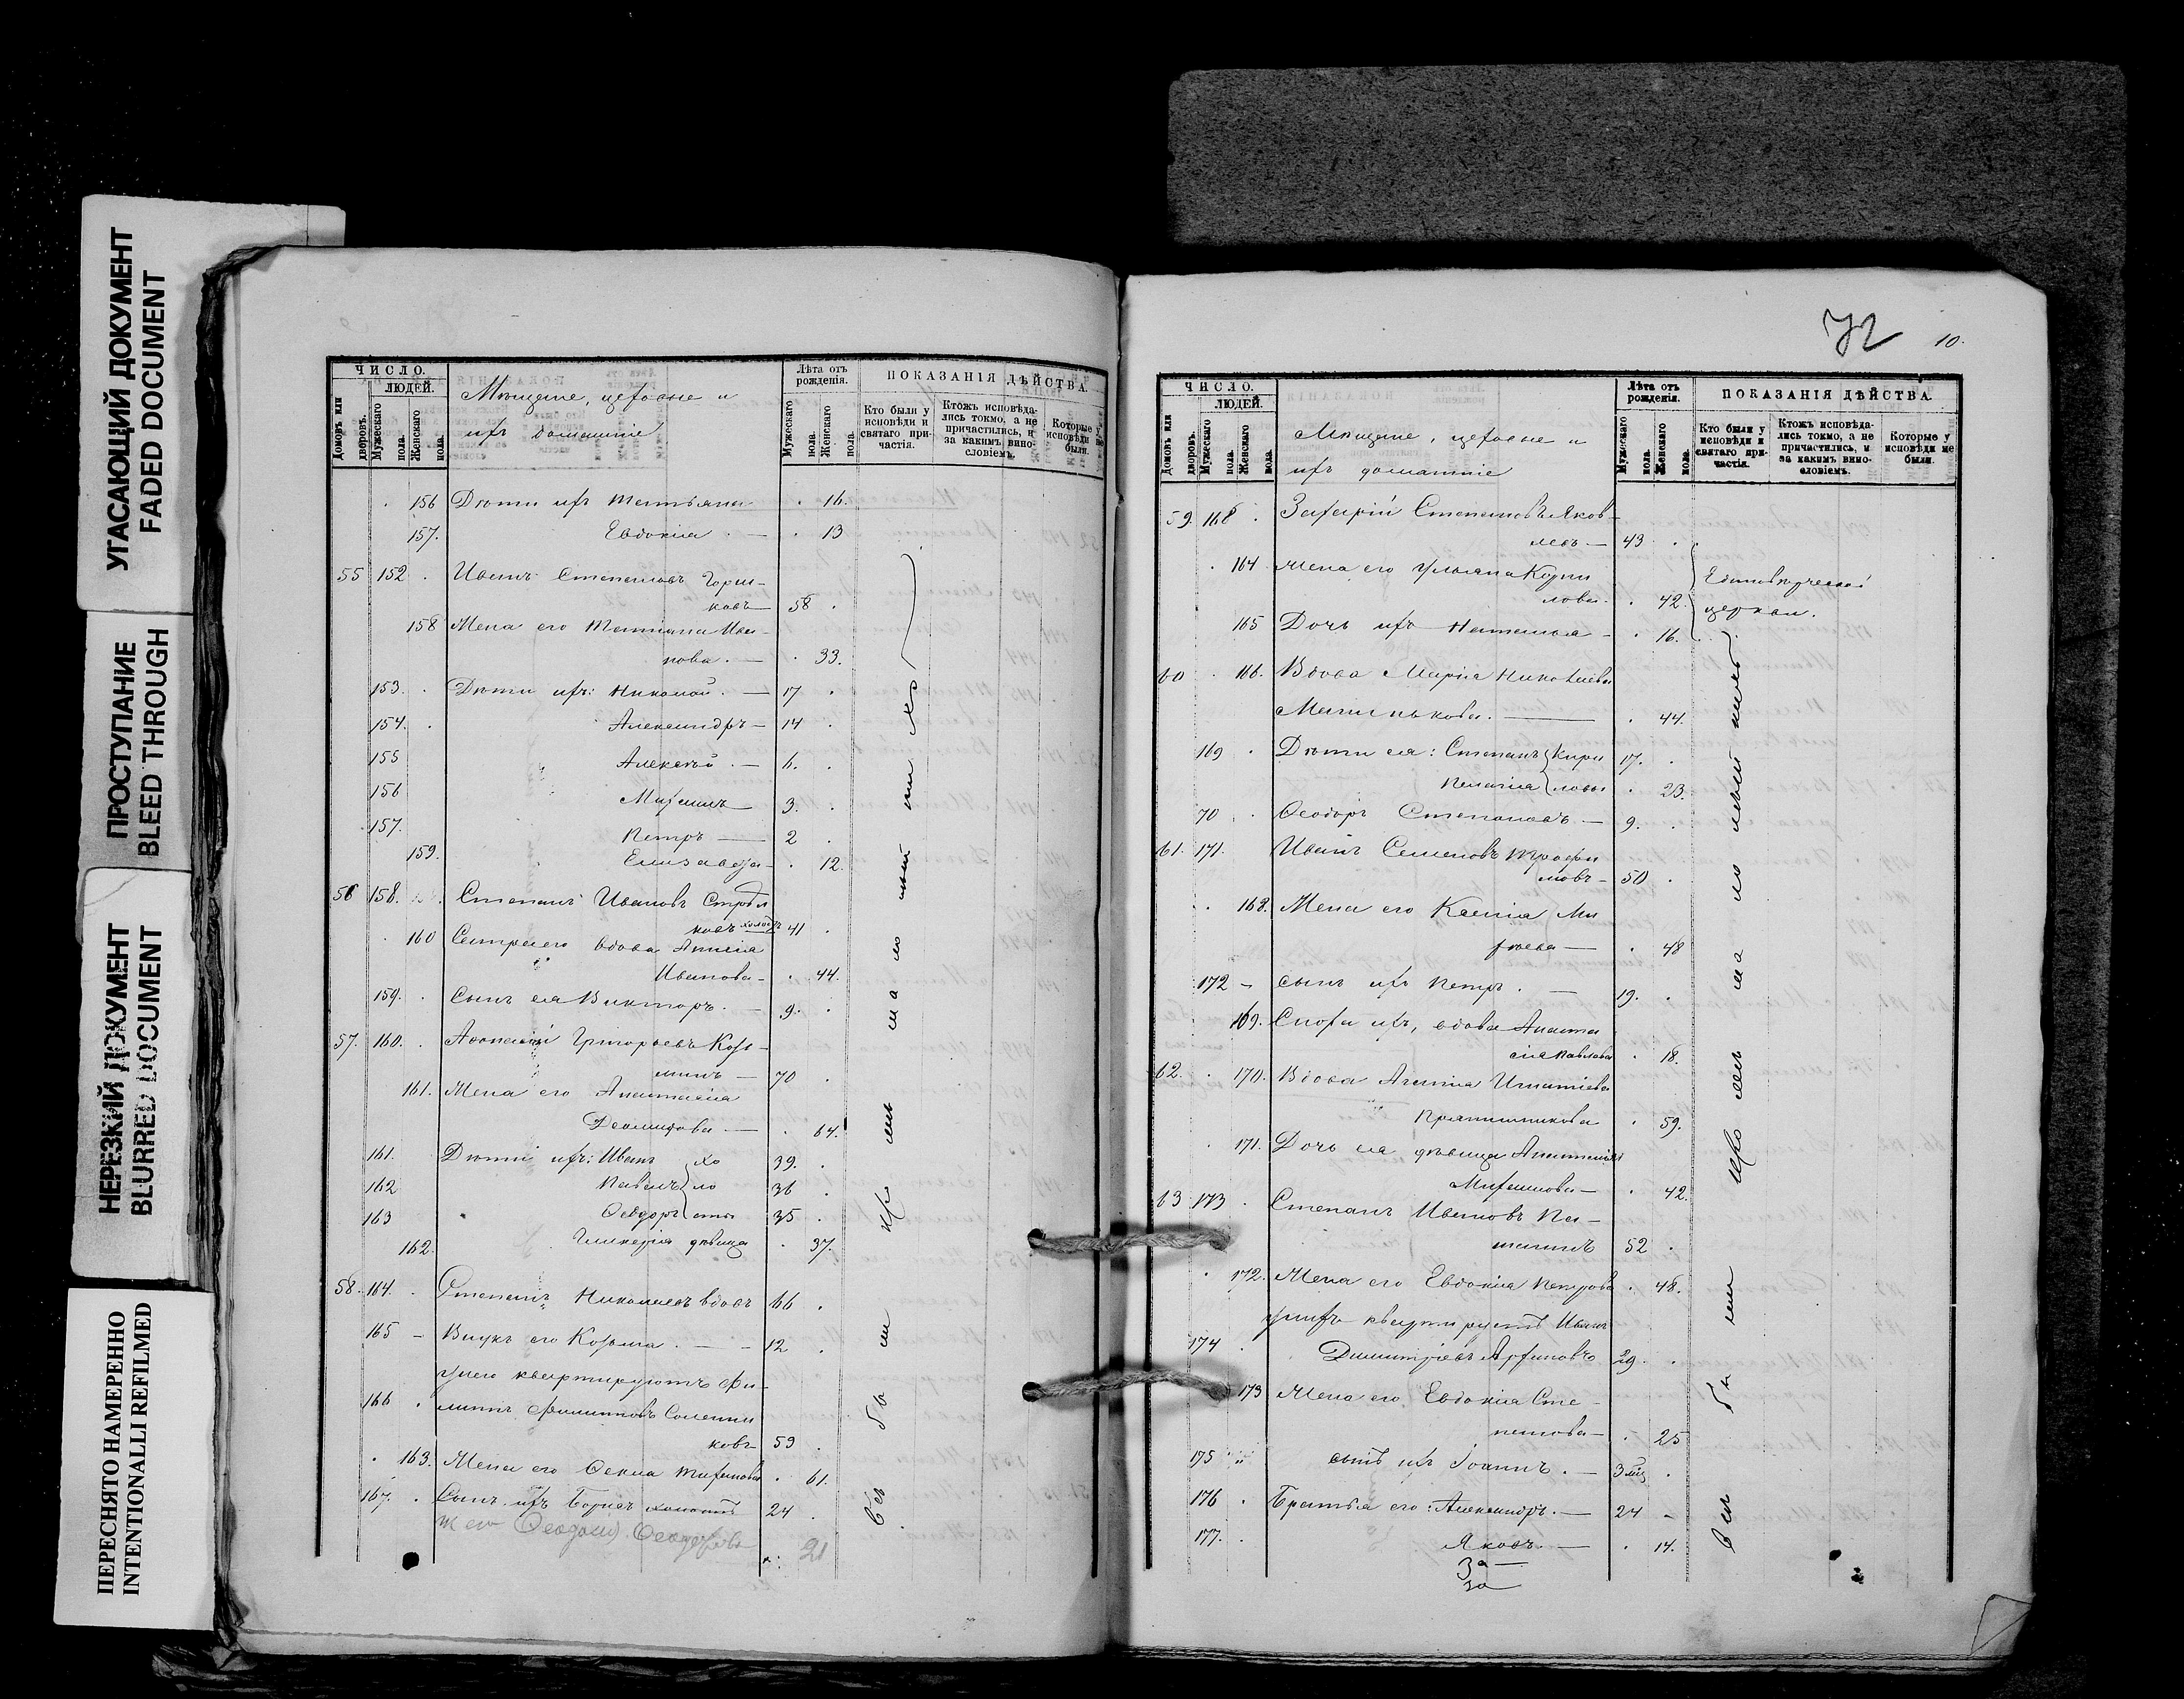 УГАСАЮЩИЙ ДОКУМЕНТ
FADED DOCUMENT
ПРОСТУПАНИЕ
BLEED THROUGH
НЕРЕЗКИЙ ДОКУМЕНТ
BLURRED DOCUMENT
ПЕРЕСНЯТО НАМЕРЕННО
INTENTIONALLI REFILMED
ЧИСЛО.
ЛЮДЕЙ.
Домовъ или дворовъ.
Мужескаго пола.
Женскаго пола.
Мѣщане, цеховые и
ихъ домашніе
Лѣта отъ рожденія.
Мужескаго пола.
Женскаго пола.
ПОКАЗАНІЯ ДѢЙСТВА.
Кто были у исповѣди и святаго причастія.
Ктожъ исповѣдались токмо, а не причастились, и за какимъ винословіемъ.
Которые у исповѣди не были.
156 Дѣти ихъ Татьяна 16.
157. Евдокія 13
55 152 Иванъ Степановъ Горш-
ковъ 58
158 Жена его Татіана Ива-
нова. 33.
153. Дѣти ихъ: Николай. 17
154. Александръ 14
155 Алексѣй. 6.
156 Михаилъ 3.
157. Петръ 2
159. Елизавета 12.
56 158. Степанъ Ивановъ Стрѣл
ковъ холостъ 41
160 Сестра его вдова Анисія
Иванова 44.
159. Сынъ ея Викторъ. 9.
57. 160. Аѳонасій Григорьевъ Козь-
минъ 70
161. Жена его Анастасія
Деомидова 64.
161. Дѣти ихъ: Иванъ хо 39.
162 Павелъ ло 36
163 Ѳеодоръ сты 35
162. Гликерія дѣвица 37.
58. 164. Степанъ Николаевъ вдовъ 66
165 Внукъ его Козьма. 12
У него квартируютъ Фи-
166 липпъ Филипповъ Солении
ковъ 59
163. Жена его Ѳекла Тихонова 61.
167. Сынъ ихъ Борисъ холостъ 24
Ж его Ѳеодосія Ѳеодорова 21
всѣ бы ли
72
10.
ЧИСЛО.
ЛЮДЕЙ.
Домовъ или дворовъ.
Мужескаго пола.
Женскаго пола.
Мѣщане, цеховые и
ихъ домашніе
Лѣта отъ рожденія.
Мужескаго пола.
Женскаго пола.
ПОКАЗАНІЯ ДѢЙСТВА.
Кто были у исповѣди и святаго причастія.
Ктожъ исповѣдались токмо, а не причастились, и за какимъ винословіемъ.
Которые у исповѣди не были.
59. 168 Захарій Степановъ Яков-
левъ 43
164 Жена его Ульяна Корни
лова. 42.
Единовѣрческой
церкви.
165 Дочь ихъ Наталья 16.
60 166. Вдова Марія Николаева
44.
169 Дѣти ея: Степанъ Кири 17.
Пелагія ловы 23.
70 Ѳеодоръ Степановъ 9.
61. 171. Иванъ Семеновъ Трофи
мовъ 50
168. Жена его Ксенія Ми
хѣева 48
172 сынъ ихъ Петръ. 19.
169. Сноха ихъ, вдова Анаста
сія Павлова 18.
62. 170. Вдова Агапія Игнатіева
Прянишникова 59.
171. Дочь ея дѣвица Анастасія
Михаилова 42.
63 173 Степанъ Ивановъ Па-
52
172. Жена его Евдокія Петрова 48.
У нихъ квартируетъ Иванъ
174 Димитріевъ Архиповъ 29.
173 Жена его Евдокія Сте-
панова 25
175 сынъ ихъ Іоаннъ. 3 мѣс
176 Братья его: Александръ. 24
177. Яковъ. 14.
За
за
всѣ бы ли